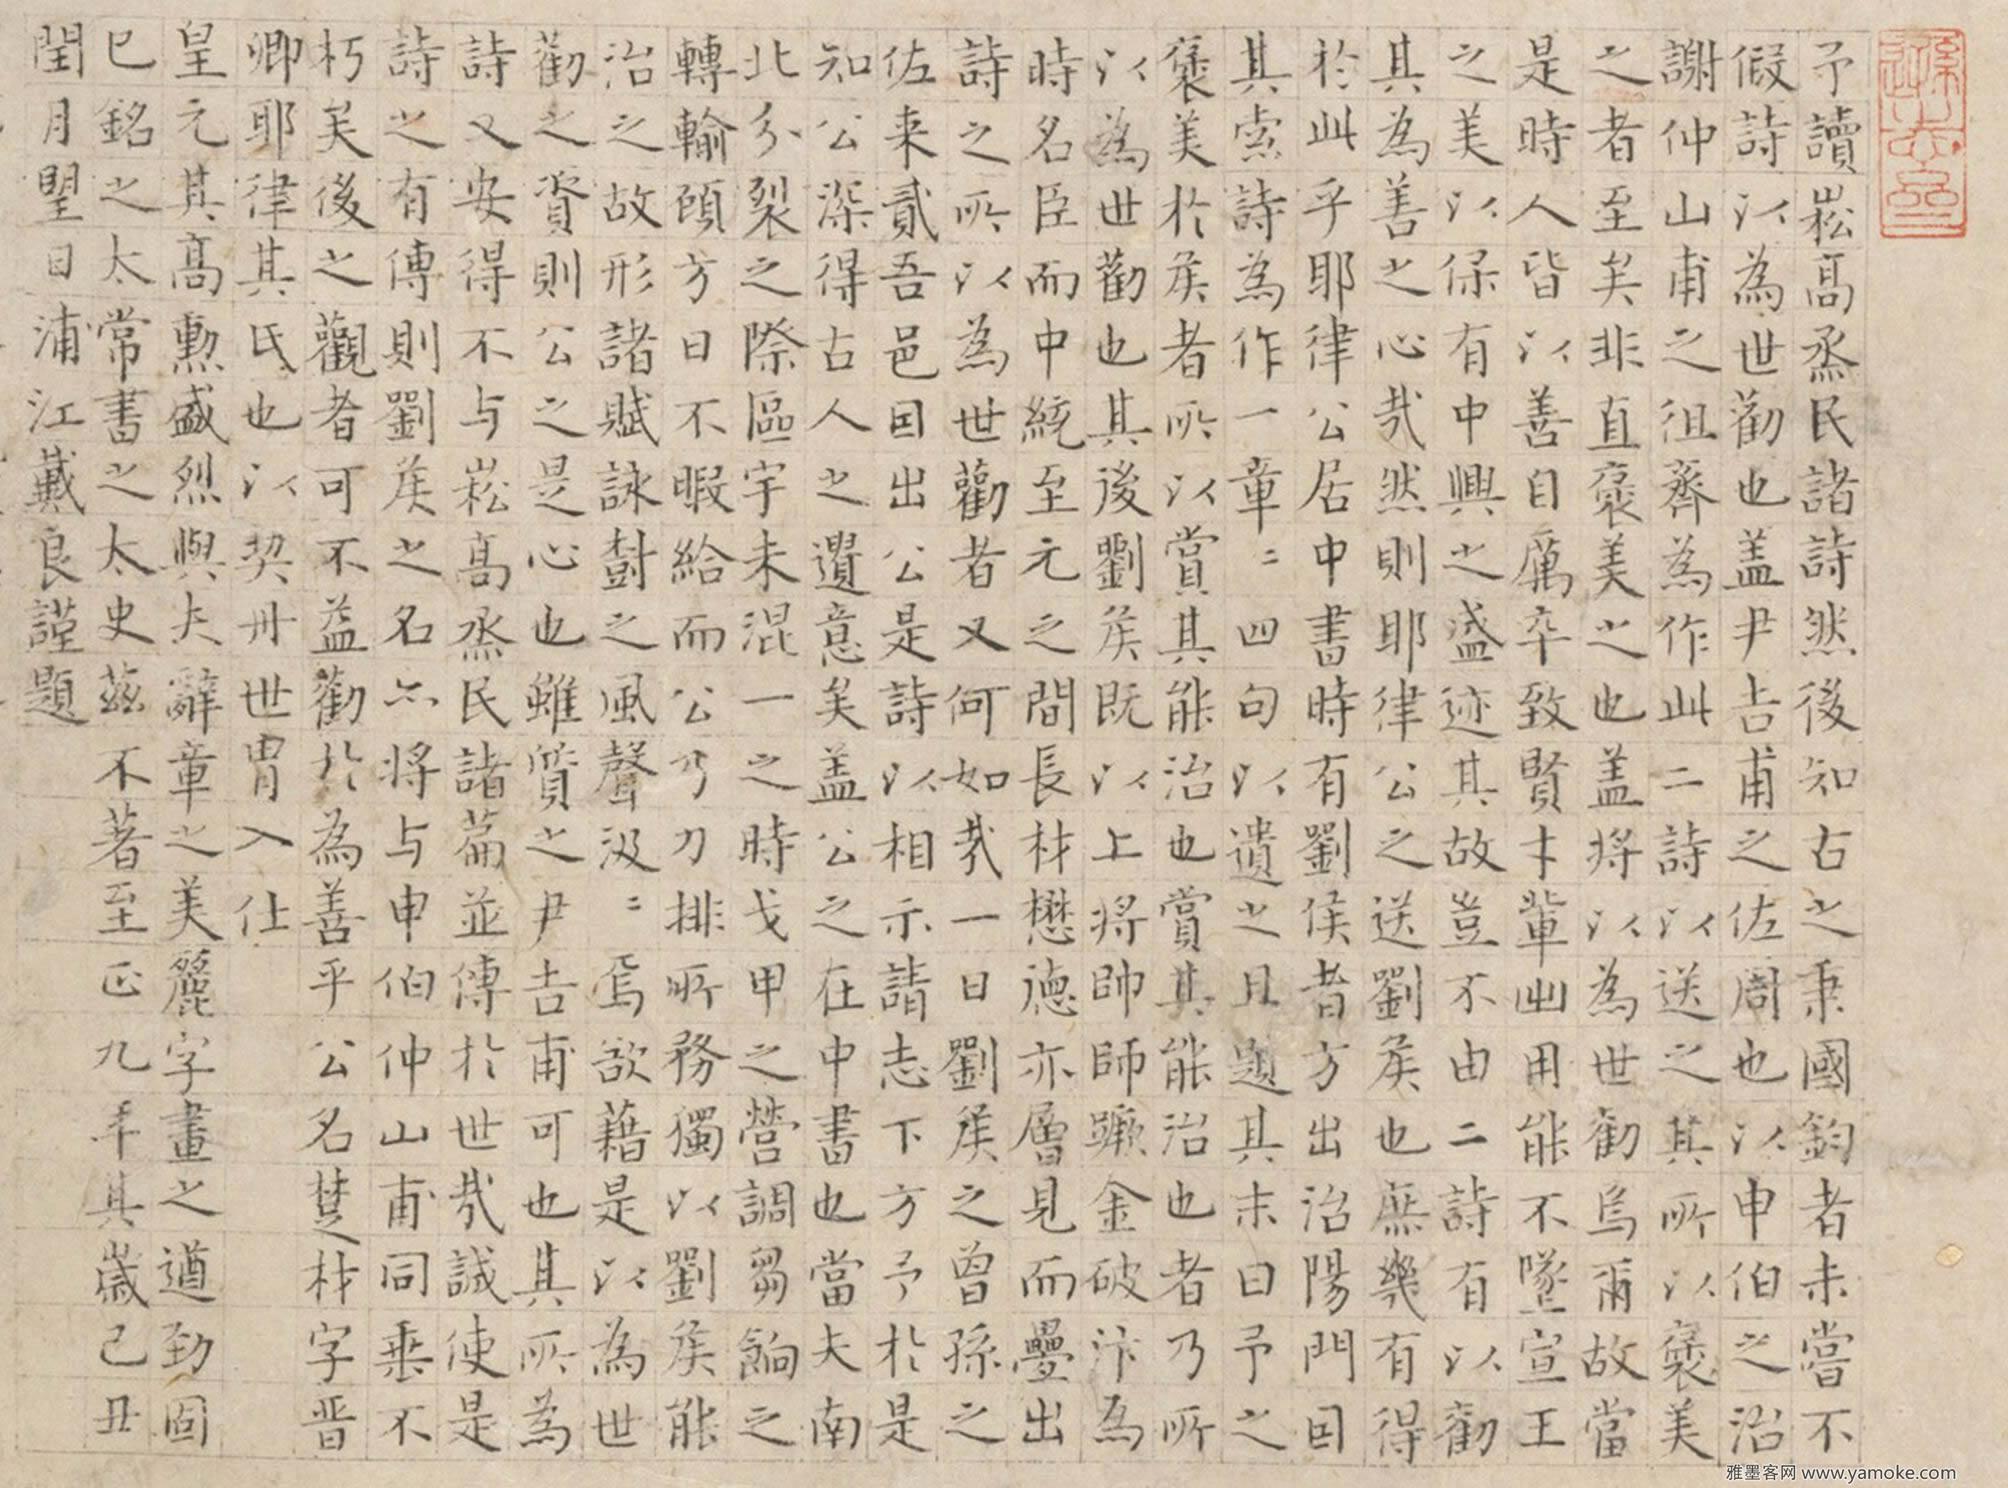 予讀崧高烝民諸詩然後知古之秉國鈞者未嘗不
假詩以為世勸也盖尹吉甫之佐周也以申伯之治
謝仲山甫之徂齊為作此二詩以送之其所以褒美
之者至矣非直褒美之也盖將以為世勸焉爾故當
是時人皆以善自厲卒致賢才輩出用能不墜宣王
之美以保有中興之盛迹其故豈不由二詩有以勸
其為善之心㢤然則耶律公之送劉矦也庶幾有得
於此乎耶律公居中書時有劉侯者方出治陽門囙
其索詩為作一章〻四句以遺之且題其末曰予之
褒美於矦者所以賞其能治也賞其能治也者乃所
以為世勸也其後劉矦既以上將帥師蹶金破汴為
時名臣而中統至元之間長材懋德亦層見而疊出
詩之所以為世勸者又何如㢤一日劉矦之曾孫之
佐来貳吾邑囙出公是詩以相示請志下方予於是
知公深得古人之遺意矣盖公之在中書也當夫南
北分裂之際區宇未混一之時戈甲之營調芻餉之
轉輸頋方日不暇給而公乃力排所務獨以劉矦能
治之故形諸賦詠樹之風聲汲〻焉欲藉是以為世
勸之資則公之是心也雖質之尹吉甫可也其所為
詩又安得不与崧高烝民諸篇並傳於世㢤誠使是
詩之有傳則劉矦之名亦将与申伯仲山甫同垂不
朽矣後之觀者可不益勸於為善乎公名楚材字晋
卿耶律其氏也以契丹世胄入仕
皇元其高勲盛烈與夫辭章之美麗字畫之遒勁固
已銘之太常書之太史兹不著至正九年其歳己丑
閏月朢日浦江戴良謹題
雅墨客网 www.yamoke.com